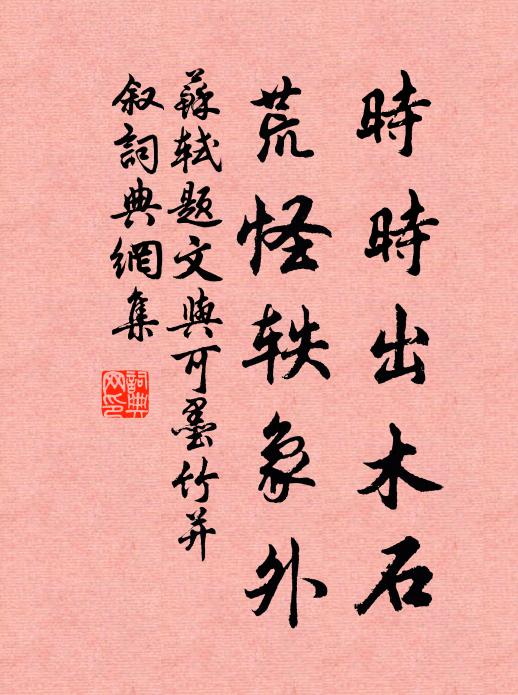 時時出木石
荒怪軼象外
蘇軾題文與可墨竹并
叙詞典網集
詞典
网印